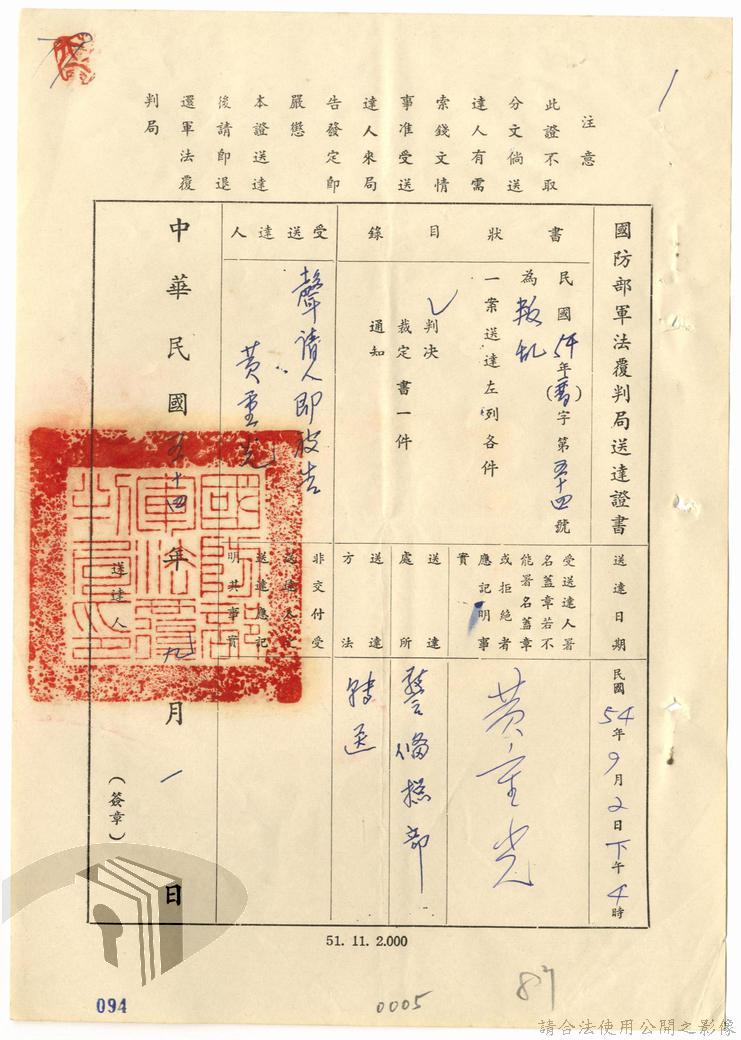 注意
此證不取
分文倘送
達人有需
索錢文情
事准受送
達人來局
告發定即
嚴懲
本證送達
後請即退
還軍法覆
判局
國防部軍法覆判局送達證書
送達日期
民國54年9月2日下午4時
書狀目錄
民國54年(覆)字第五十四號
為叛乱
一案送達左列各件
✓判決
裁定書一件
通知
受送達人署
名蓋章若不
能署名蓋章
或拒絕者
應記明事
實
黃重光
受送達人
聲請人即被告
黃重光
送達處所
警備總部
送達方法
轉送
非交付受
送達人之
送達應記
明其事實
中華民國五十四年九月一日
送達人
(簽章)
國防部軍法覆判局印
51. 11. 2.000
094
0005
87
請合法使用公開之影像